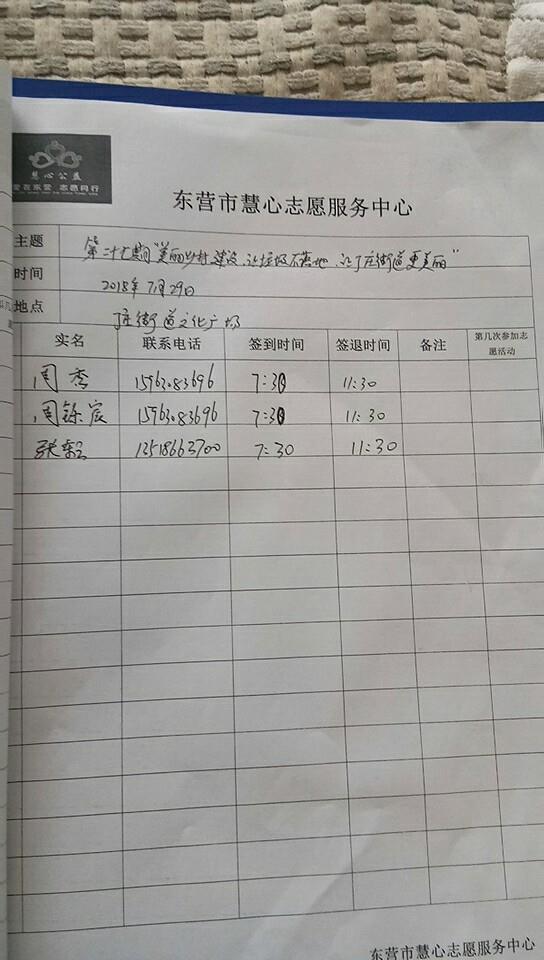 慧心公益
爱在东营 志愿同行
东营市慧心志愿服务中心
主题 第二十七期"美丽乡村建设,让垃圾不落地,让丁庄街道更美丽"
时间 2018年7月29日
地点 丁庄街道文化广场
实名 联系电话 签到时间 签退时间 备注 第几次参加志愿活动
周秀 15963083696 7:30 11:30
周铄宸 15963083696 7:30 11:30
张 13518663700 7:30 11:30
东营市慧心志愿服务中心